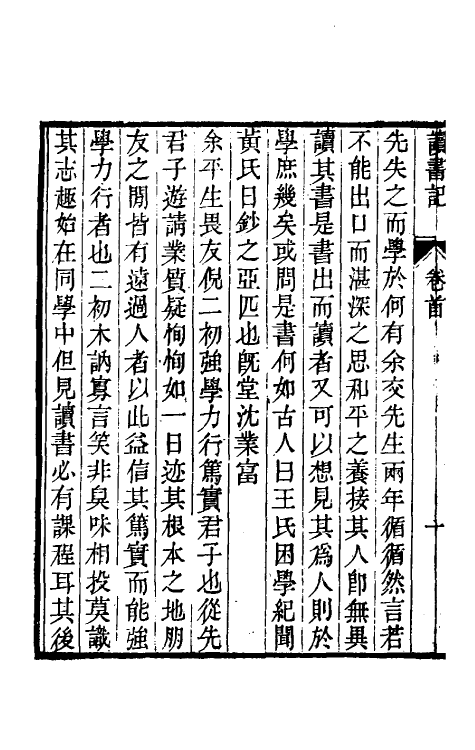 讀書記
卷首
十
先失之而學於何有余交先生兩年循循然言若
不能出口而湛深之思和平之養接其人卽無異
讀其書是書出而讀者又可以想見其爲人則於
學庶幾矣或問是書何如古人曰王氏困學紀聞
黃氏日鈔之亞匹也旣堂沈業富
余平生畏友倪二初強學力行篤實君子也從先
君子遊請業質疑恂恂如一日迹其根本之地朋
友之閒皆有遠過人者以此益信其篤實而能強
學力行者也二初木訥寡言笑非臭味相投莫識
其志趣始在同學中但見讀書必有課程耳其後